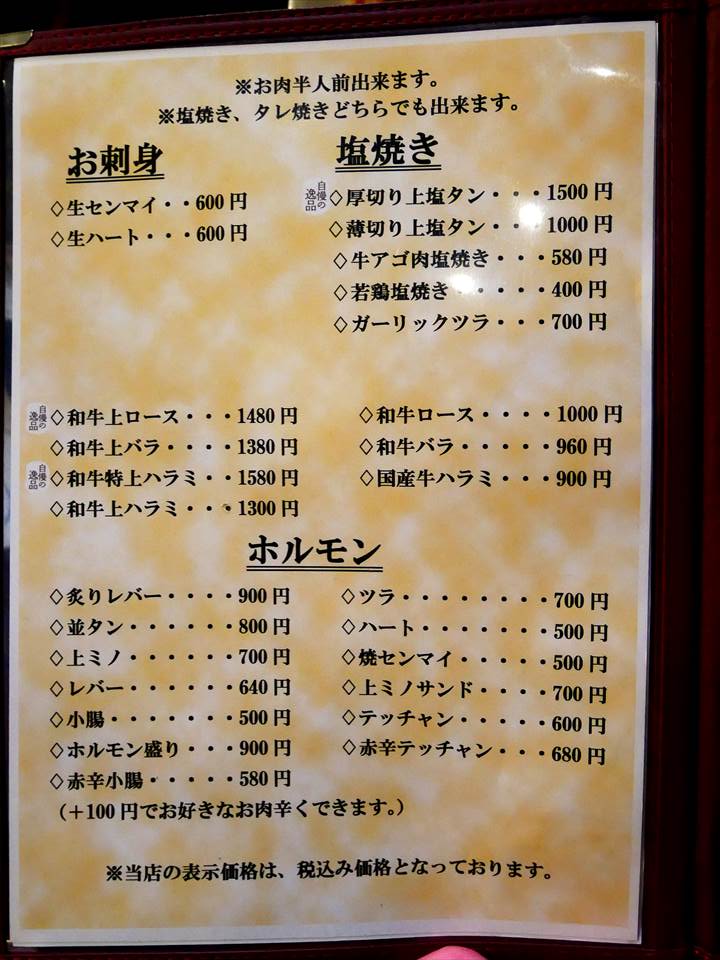 ※お肉半人前出来ます。
※塩焼き、タレ焼きどちらでも出来ます。
お刺身
◇生センマイ・・600円
◇生ハート・・・600円
塩焼き
自慢の逸品 ◇厚切り上塩タン・・・1500円
◇薄切り上塩タン・・・1000円
◇牛アゴ肉塩焼き・・・580円
◇若鶏塩焼き・・・・・400円
◇ガーリックツラ・・・700円
自慢の逸品 ◇和牛上ロース・・・1480円
◇和牛上バラ・・・・1380円
自慢の逸品 ◇和牛特上ハラミ・・1580円
◇和牛上ハラミ・・・1300円
◇和牛ロース・・・・1000円
◇和牛バラ・・・・・960円
◇国産牛ハラミ・・・900円
ホルモン
◇炙りレバー・・・・900円
◇並タン・・・・・・800円
◇上ミノ・・・・・・700円
◇レバー・・・・・・640円
◇小腸・・・・・・・500円
◇ホルモン盛り・・・900円
◇赤辛小腸・・・・・580円
◇ツラ・・・・・・・・700円
◇ハート・・・・・・・500円
◇焼センマイ・・・・・500円
◇上ミノサンド・・・・700円
◇テッチャン・・・・・600円
◇赤辛テッチャン・・・680円
（＋100円でお好きなお肉辛くできます。）
※当店の表示価格は、税込み価格となっております。